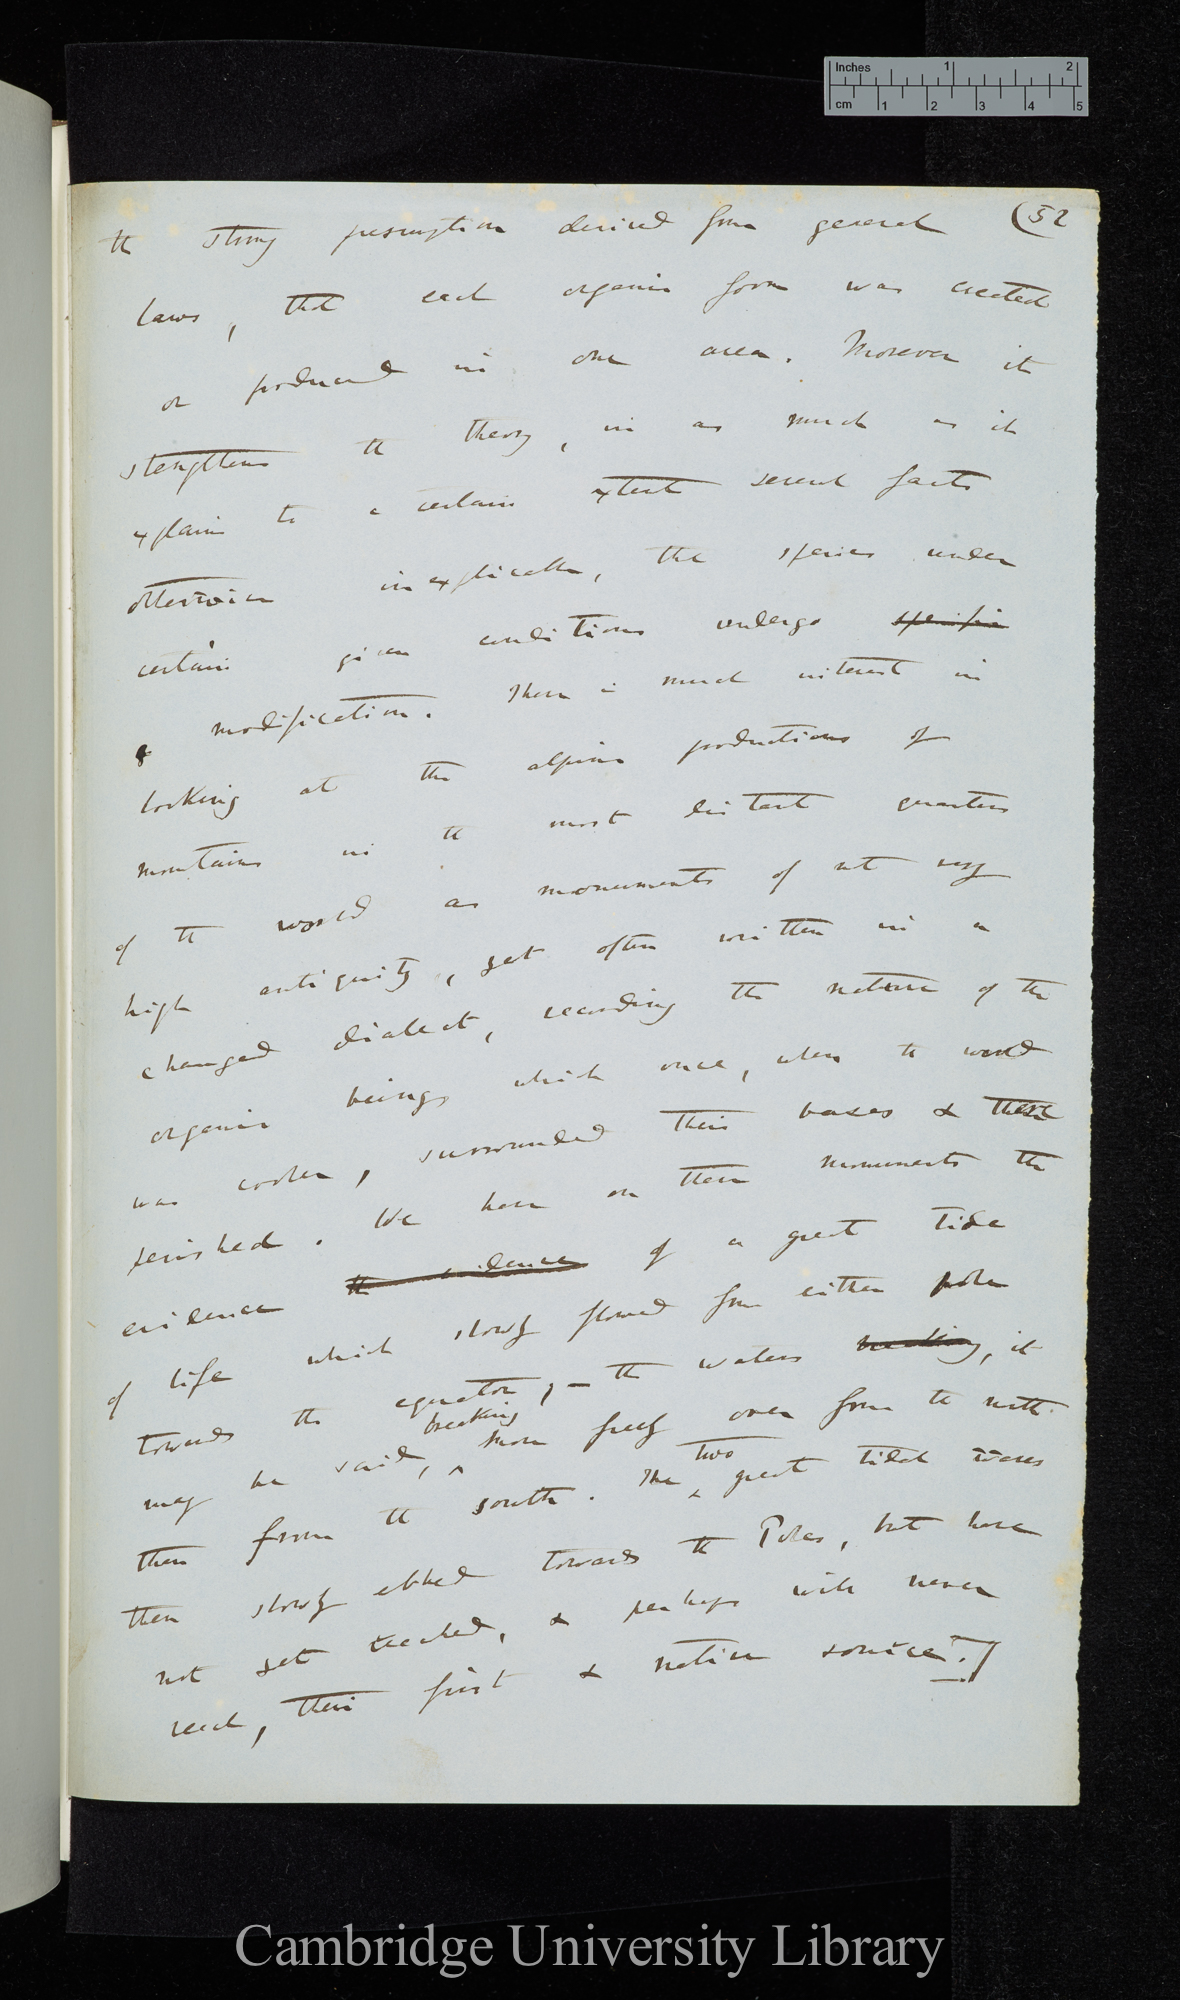 Inches 1 2
cm 1 2 3 4 5
(52
the strong presumption derived from general
laws, that each organic form was created
or produced in one area. Moreover it
strengthens the theory, in as much as it
explain to a certain extent several facts
otherwise inexplicable, the species under
certain given conditions undergo specific
modification. There is much interest in
looking at the alpine productions of
mountains in the most distant quarters
of the world as monuments of not very
high antiquity, yet often written in a
changed dialect, recording the nature of the
organic beings which once, when the world
was cooler, surrounded their bases & there
perished. We have on these monuments the
evidence the evidence of a great tide
of life which slowly flowed from either pole
towards the equator, — the waters breaking, it
may be said, breaking more freely over from the north
than from the south. The two great tidal waves
then slowly ebbed towards the Poles, but have
not yet reached, & perhaps will never
reach, their first & native source.]
Cambridge University Library